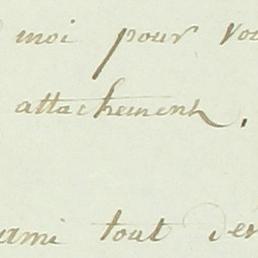 moi pour vou
attachement.
ami tout